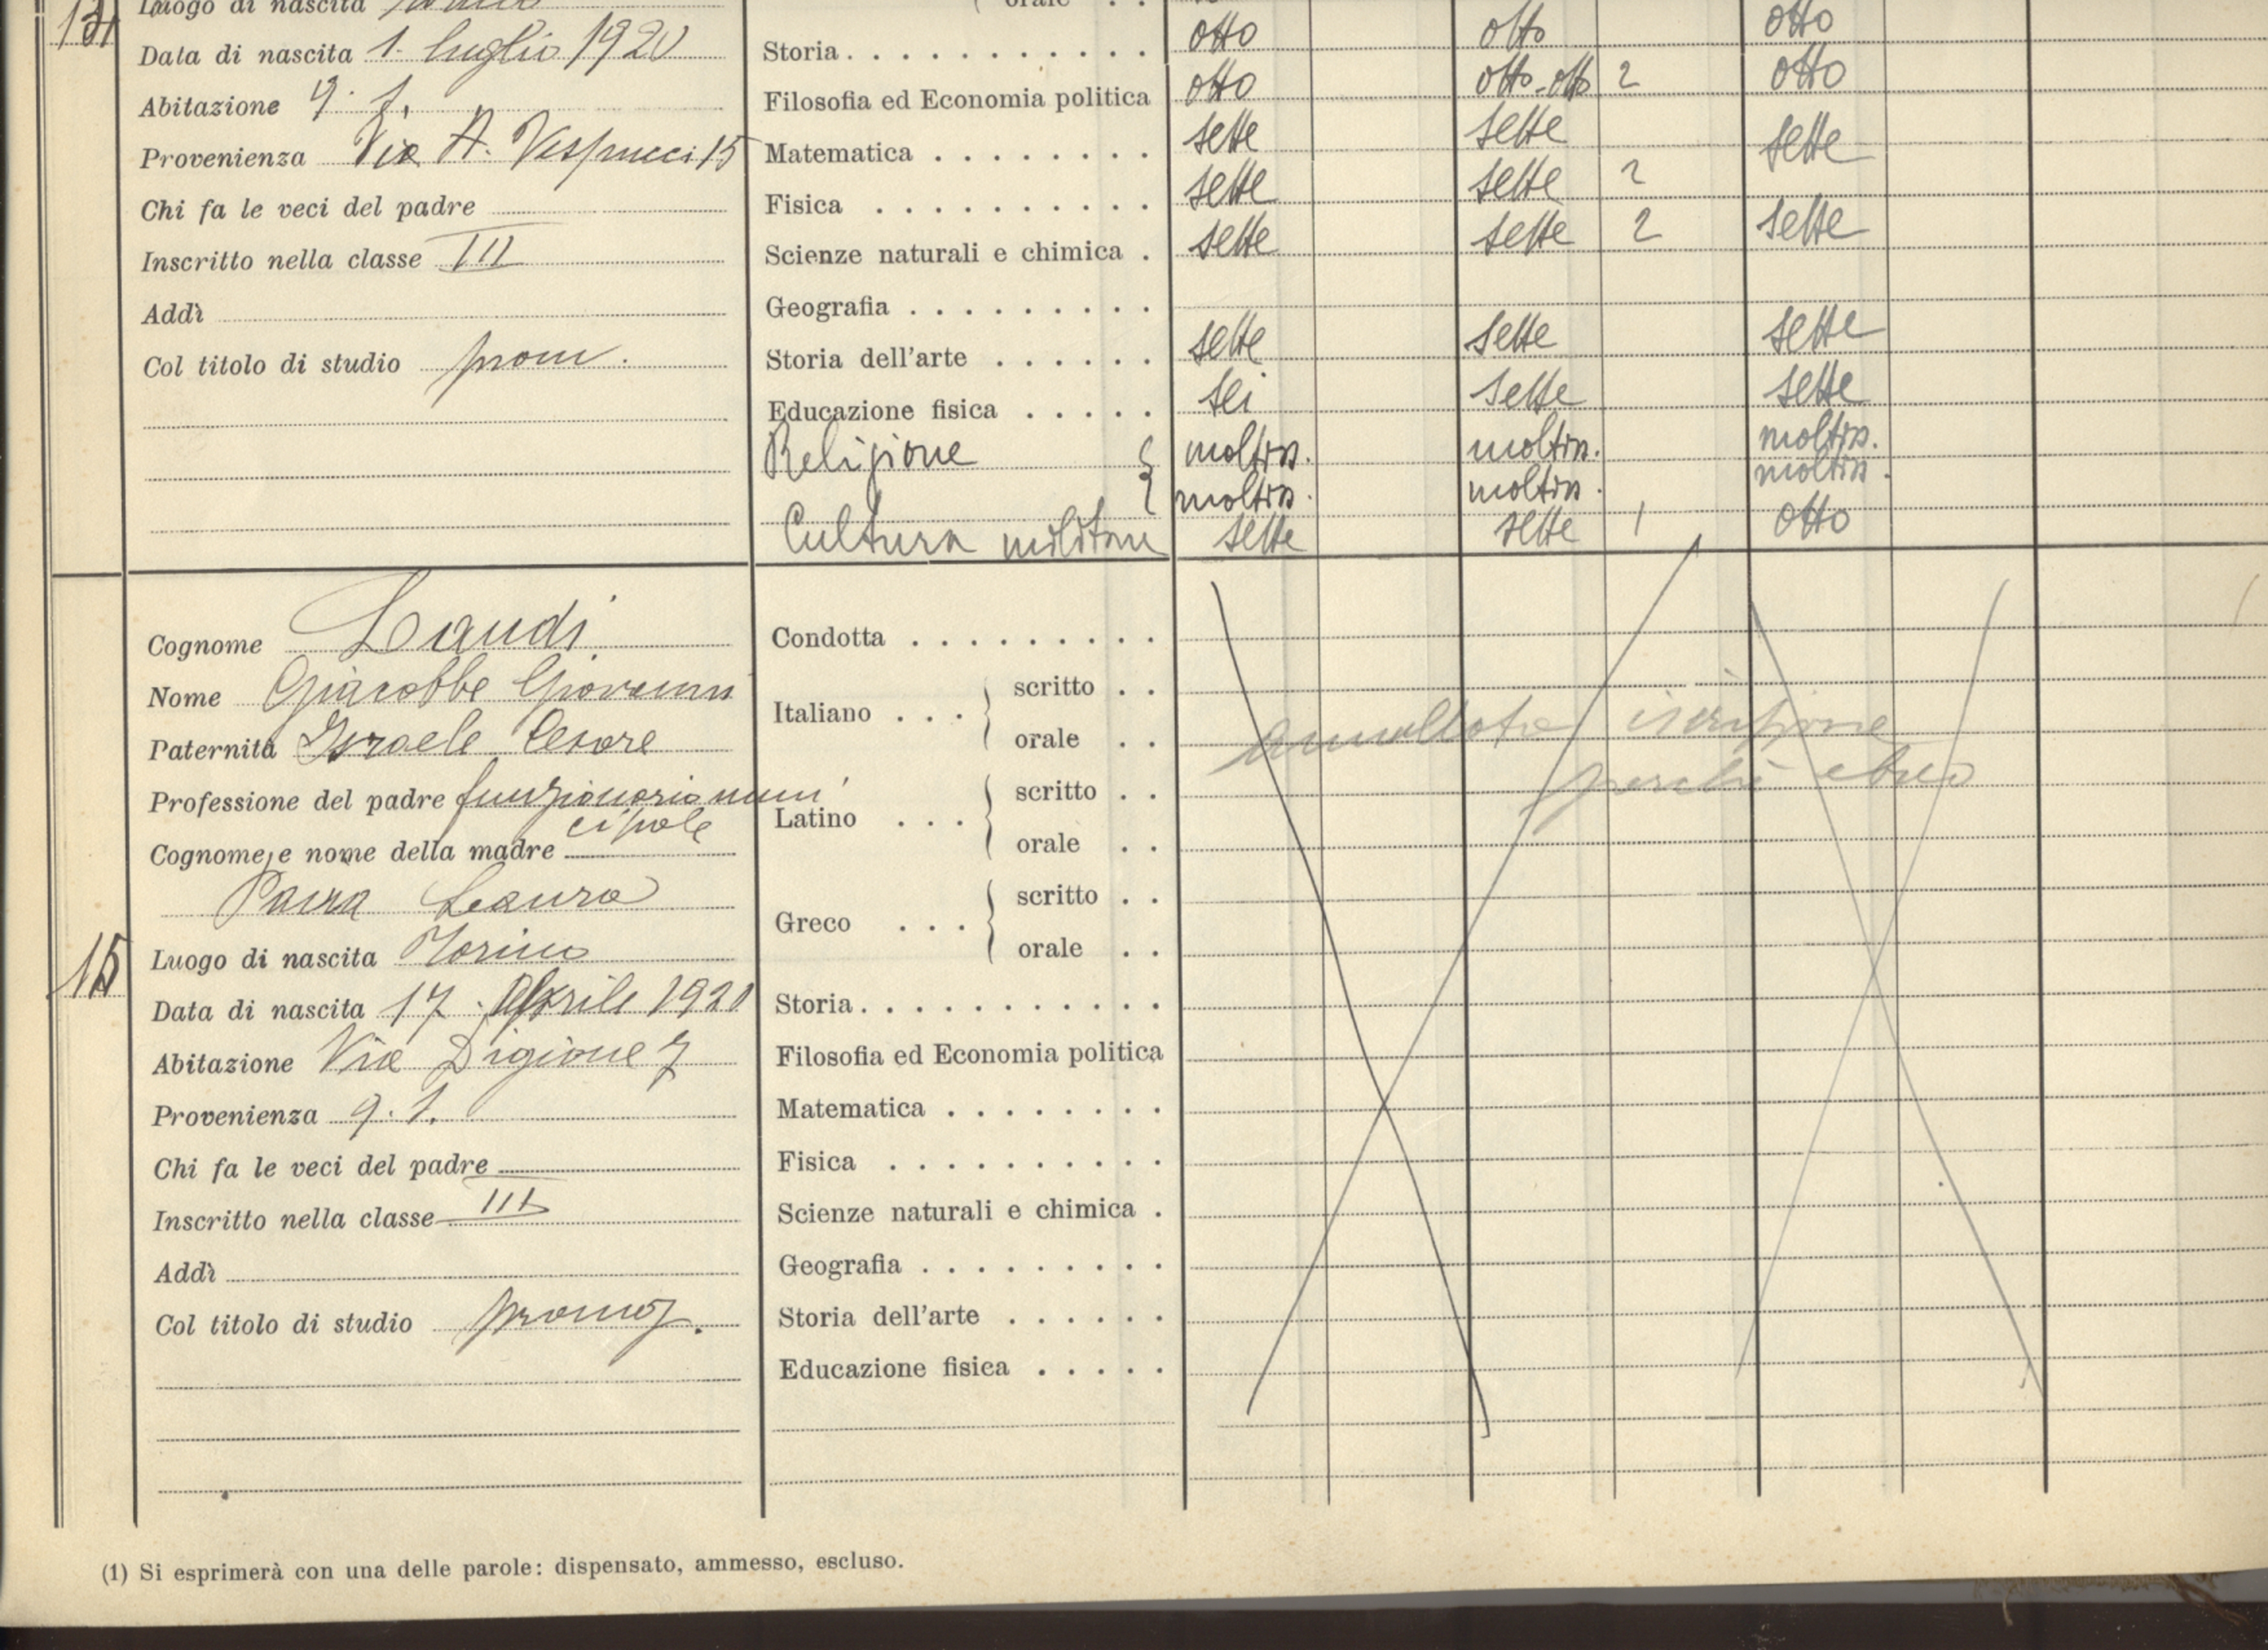 Luogo di nascita
orale . .
Data di nascita 1. luglio 1920
Storia . . . . . . . . . . . otto otto otto
Abitazione q. t.
Filosofia ed Economia politica otto otto-otto 2 otto
Provenienza Via A. Vespucci 15
Matematica . . . . . . . . sette sette sette
Chi fa le veci del padre
Fisica . . . . . . . . . . sette sette 2
Inscritto nella classe III
Scienze naturali e chimica . sette sette 2 sette
Addì
Geografia . . . . . . . . .
Col titolo di studio prom.
Storia dell'arte . . . . . . sette sette sette
Educazione fisica . . . . . sei sette sette
Religione { moltiss. moltiss. moltiss.
moltiss. moltiss. moltiss.
Cultura militare sette sette 1 otto
Cognome Landi
Condotta . . . . . . . . .
Nome Giacobbe Giovanni
Italiano . . . { scritto . .
Paternità Israele Cesare
orale . .
annullata iscrizione
perchè ebreo
Professione del padre funzionario muni
cipale
Latino . . . { scritto . .
Cognome e nome della madre
orale . .
Laura
Greco . . . { scritto . .
15
Luogo di nascita Torino
orale . .
Data di nascita 17 Aprile 1920
Storia . . . . . . . . . . .
Abitazione Via Digione 7
Filosofia ed Economia politica
Provenienza q. t.
Matematica . . . . . . . .
Chi fa le veci del padre
Fisica . . . . . . . . . .
Inscritto nella classe III
Scienze naturali e chimica .
Addì
Geografia . . . . . . . . .
Col titolo di studio promoz.
Storia dell'arte . . . . . .
Educazione fisica . . . . .
(1) Si esprimerà con una delle parole: dispensato, ammesso, escluso.